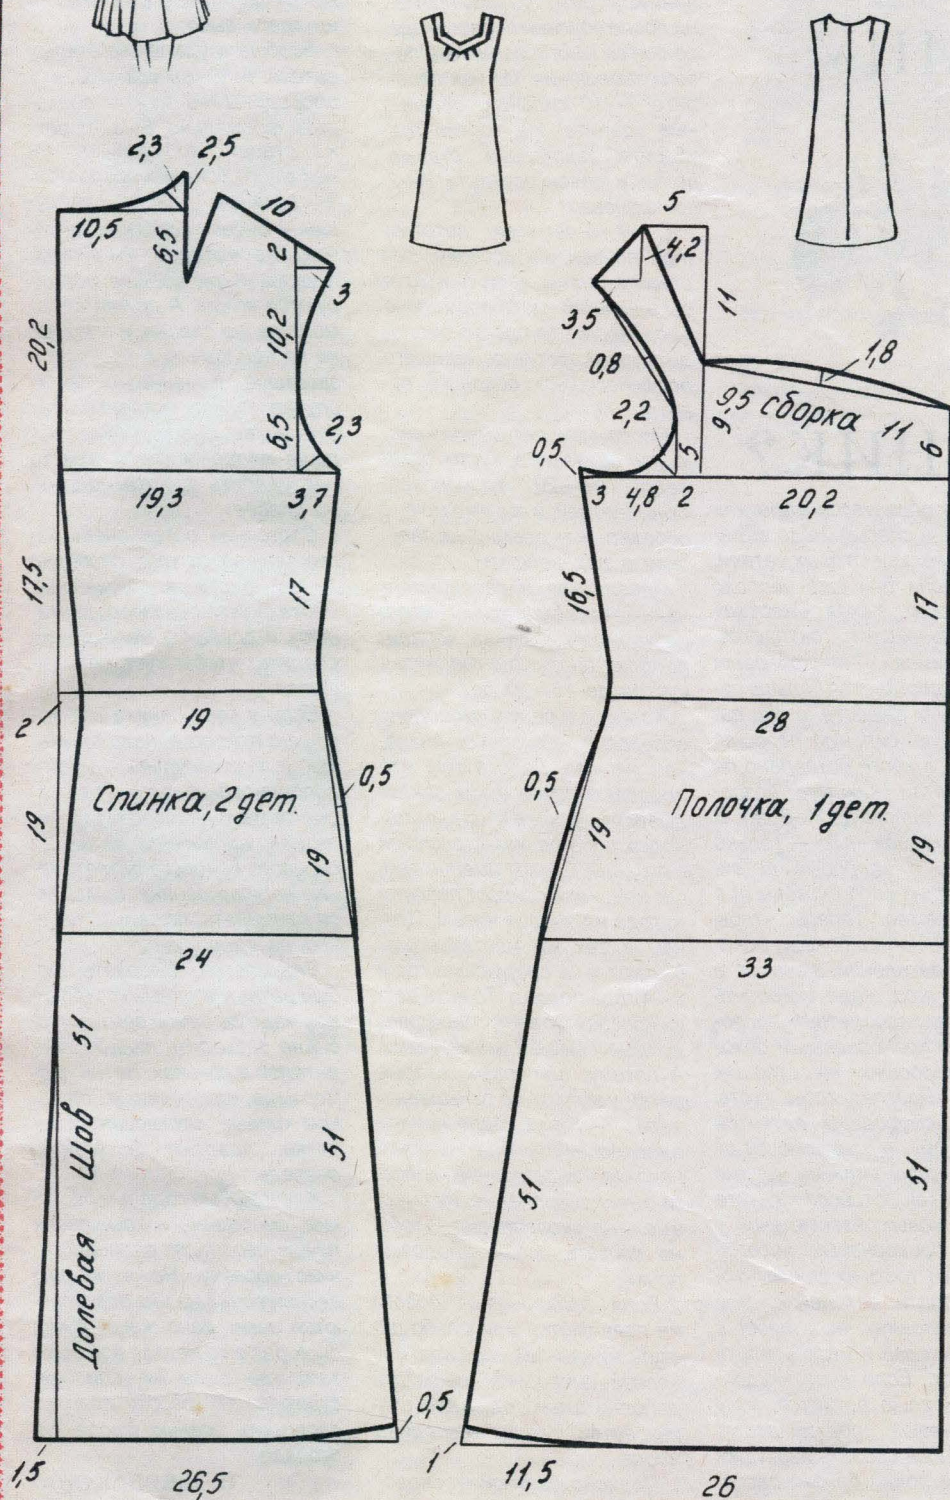 2,3
2,5
10,5
6,5
10
2
3
20,2
10,2
6,5
2,3
19,3
3,7
17,5
17
2
19
0,5
Спинка, 2 дет.
19
19
24
51
51
Долевая Шов
0,5
1,5
26,5
5
4,2
3,5
11
0,8
1,8
9,5 сборка 11
2,2
5
9
6
0,5
3
4,8
2
20,2
16,5
17
28
0,5
Полочка, 1 дет.
19
19
33
51
51
1
11,5
26